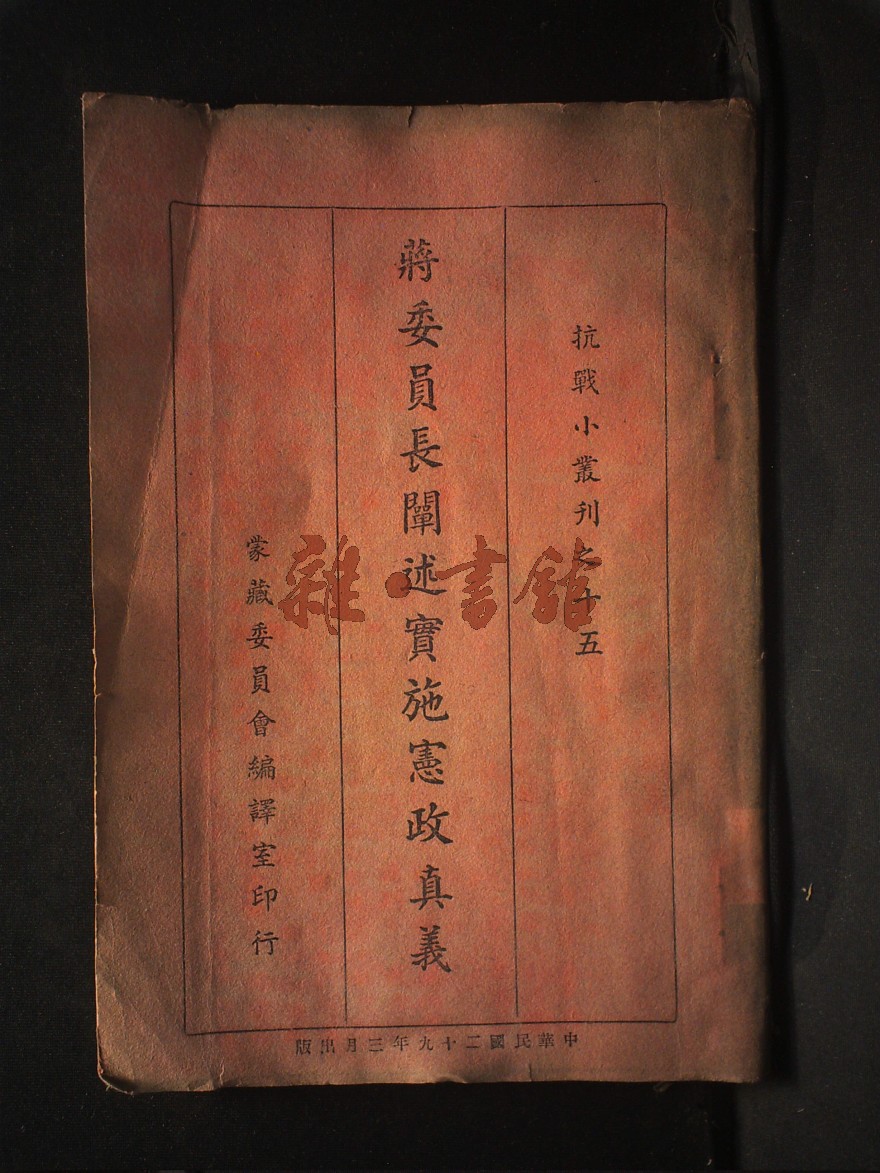 抗戰小叢刊之十五
蔣委員長闡述實施憲政真義
蒙藏委員會編譯室印行
中華民國二十九年三月出版
雜·書館